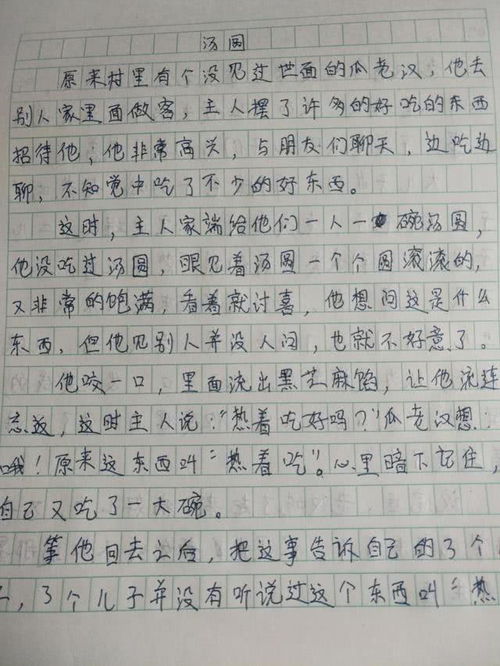 汤圆
原来村里有个没见过世面的瓜老汉，他去
别人家里面做客，主人摆了许多的好吃的东西
招待他，他非常高兴，与朋友们聊天，边吃边
聊，不知觉中吃了不少的好东西。
这时，主人家端给他们一人一碗汤圆，
他没吃过汤圆，眼见着汤圆一个个圆滚滚的，
又非常的饱满，看着就讨喜，他想问这是什么
东西，但他见别人并没人问，也就不好意了。
他咬一口，里面流出黑芝麻馅，让他流连
忘返，这时主人说：“热着吃好吗？”瓜老汉想：
哦！原来这东西叫“热着吃”。心里暗下记住，
自己又吃了一大碗。
等他回去之后，把这事告诉自己的3个
，3个儿子并没有听说过这个东西叫“热